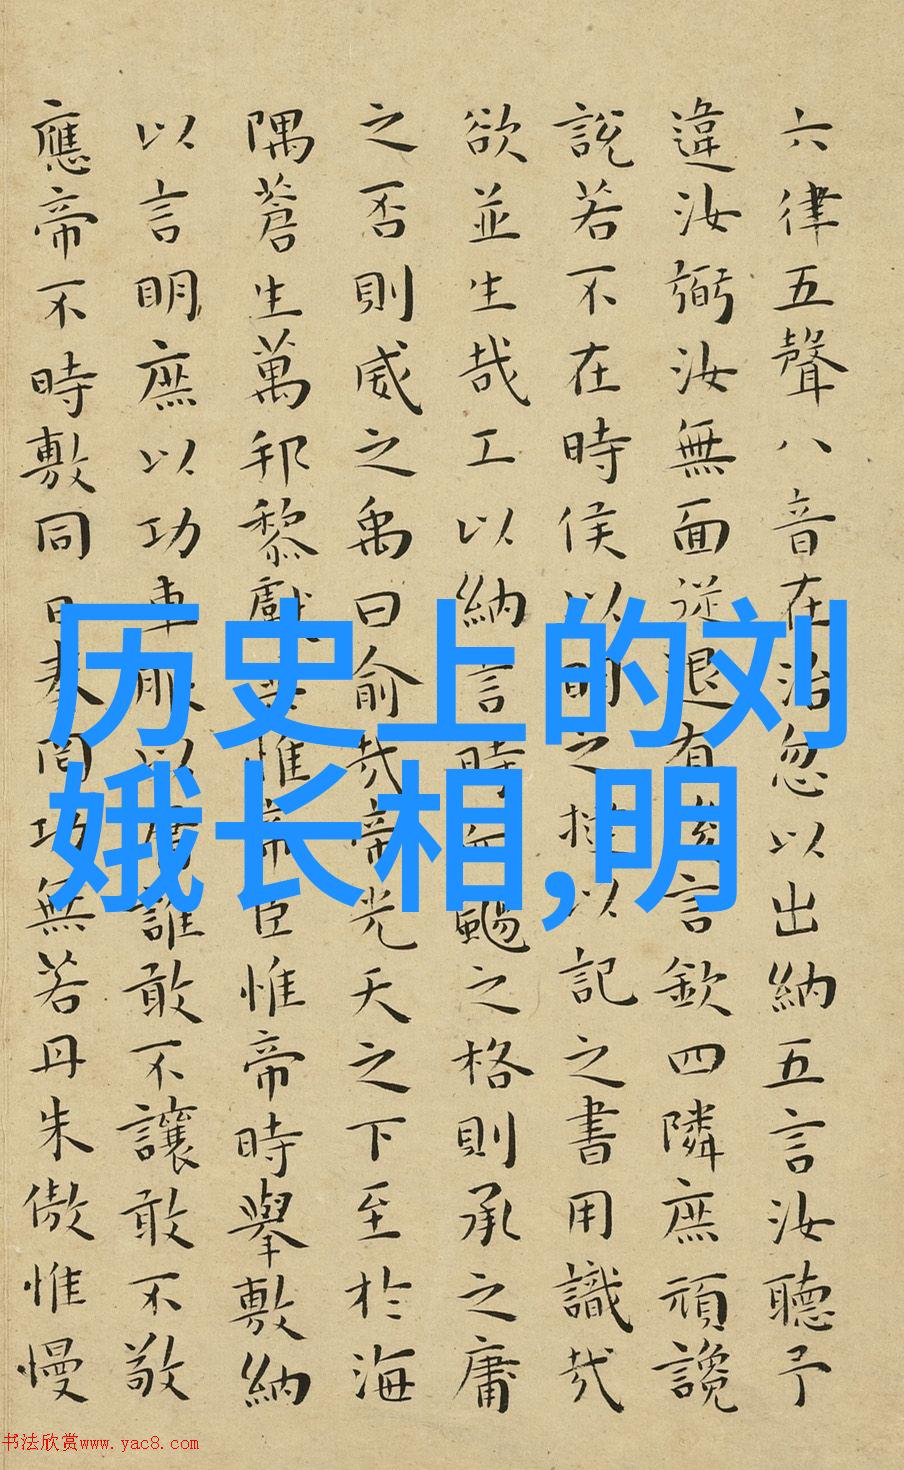 六律五聲八音在治忽以出納五言汝聽予
違汝弼汝無面從退有後言欽四隣庶頑讒
說若不在時侯以明之撻以記之書用識哉
欲並生哉工以納言時而颺之格則承之庸
之否則威之禹曰俞哉帝光天之下至於海
隅蒼生萬邦黎獻共惟帝臣惟帝時舉敷納
以言明庶以功車服以庸誰敢不讓敢不敬
應帝不時敷同日奏罔功無若丹朱傲惟慢
历史上的刘
娥长相,明
书法欣赏www.yac8.com